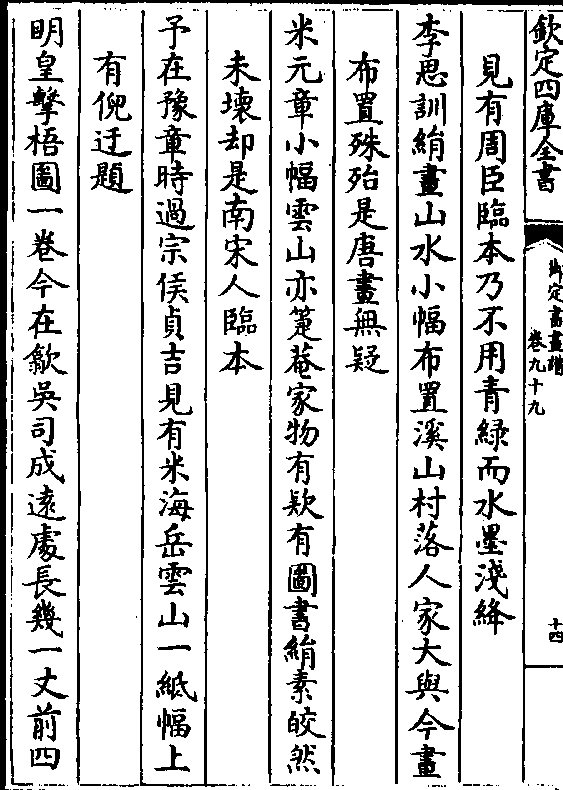 欽定四庫全書
御定書畫譜
卷九十九
十四
見有周臣臨本乃不用青緑而水墨淺絳
李思訓絹畫山水小幅布置溪山村落人家大與今畫
布置殊殆是唐畫無疑
米元章小幅雲山亦篁菴家物有欵有圖書絹素皎然
未壞却是南宋人臨本
予在豫章時過宗侯貞吉見有米海岳雲山一紙幅上
有倪迂題
明皇擊梧圖一卷今在歙吳司成遠處長幾一丈前四